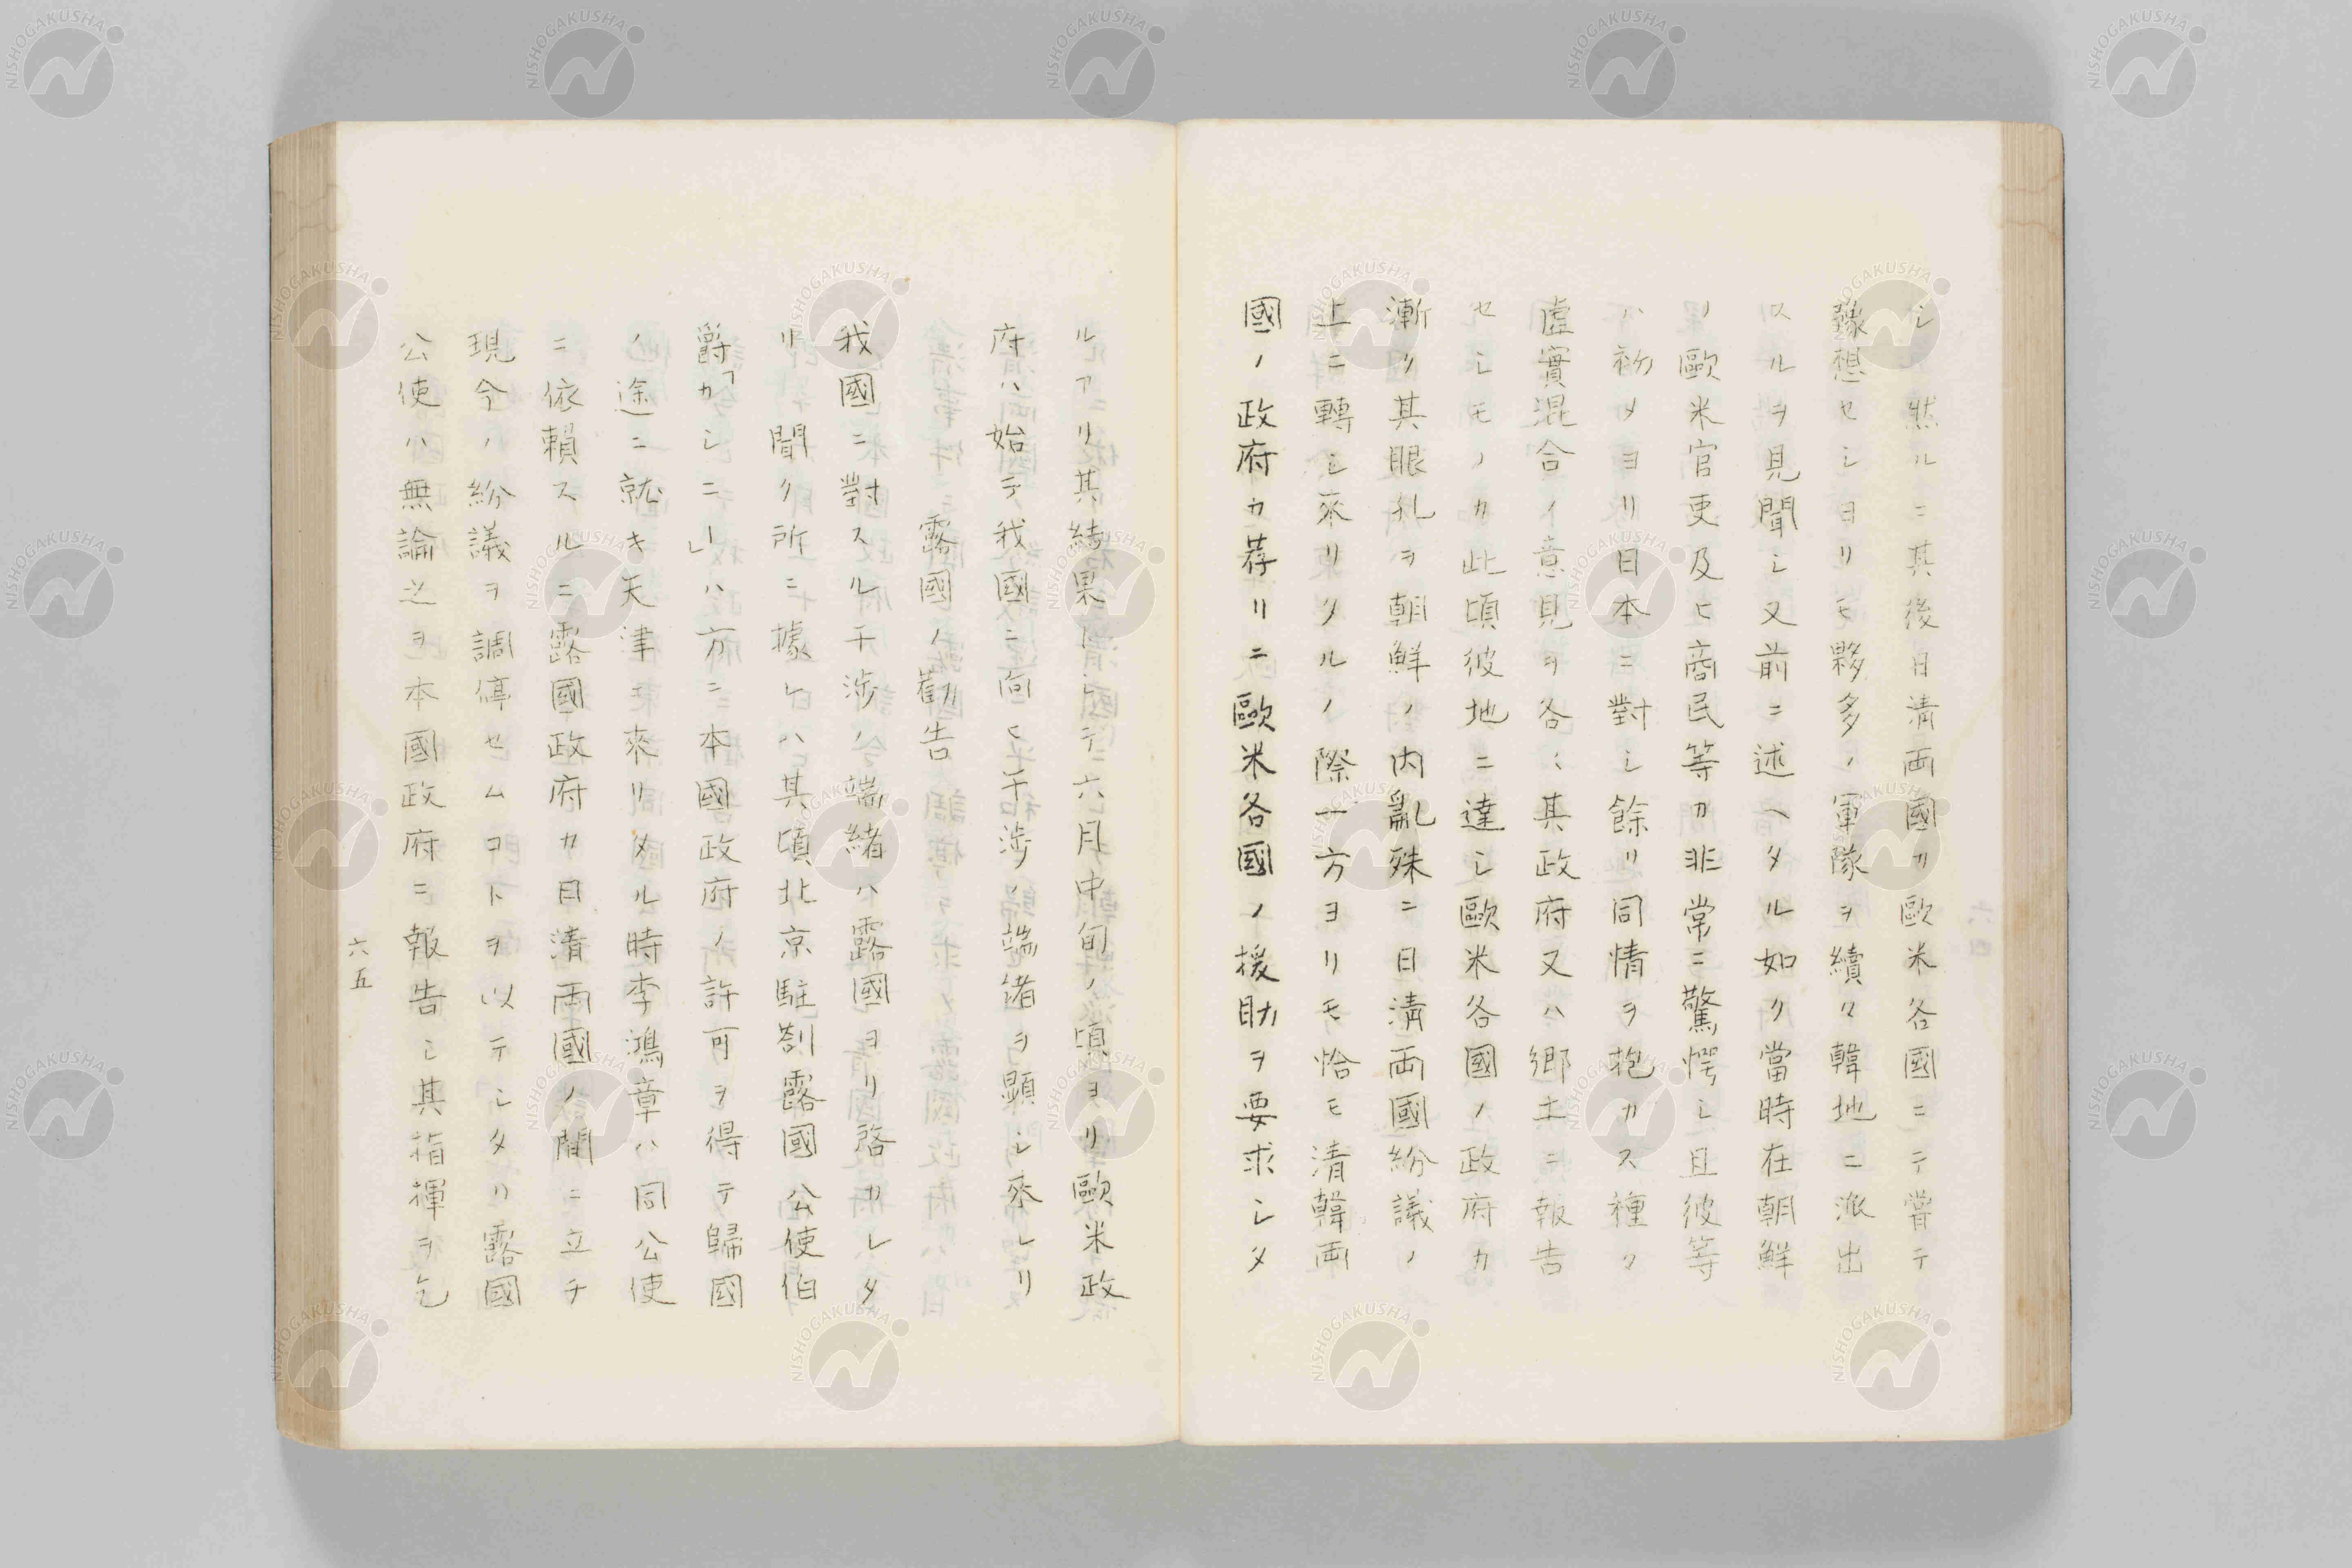 シ然ルニ其後日清両國カ歐米各國ニテ嘗テ
豫想セシヨリモ夥多ノ軍隊ヲ續々韓地ニ派出
スルヲ見聞シ又前ニ述ヘタル如ク當時在朝鮮
ノ歐米官吏及ヒ商民等カ非常ニ驚愕シ且彼等
ハ初メヨリ日本ニ對シ餘リ同情ヲ抱カス種々
虚實混合ノ意見ヲ各〻其政府又ハ郷土ニ報告
セシモノカ此頃彼地ニ達シ歐米各國ノ政府カ
漸ク其眼孔ヲ朝鮮ノ内亂殊ニ日清両國紛議ノ
上ニ轉シ來リタルノ際一方ヨリモ恰モ清韓両
國ノ政府カ荐リニ歐米各國ノ援助ヲ要求シタ
ルアリ其結果トシテ六月中旬ノ頃ヨリ歐米政
府ハ始テ我國ニ向ヒ干渉ノ端緒ヲ顕シ來レリ
露國ノ勸告
我國ニ對スル干渉ノ端緒ハ露國ヨリ啓カレタ
リ聞ク所ニ據レハ其頃北京駐剳露國公使伯
爵「カシニー」ハ方ニ本國政府ノ許可ヲ得テ歸國
ノ途ニ就キ天津ニ來リタル時李鴻章ハ同公使
ニ依頼スルニ露國政府カ日清両國ノ間ニ立チ
現今ノ紛議ヲ調停セムコトヲ以テシタリ露國
公使ハ無論之ヲ本國政府ニ報告シ其指揮ヲ乞
六五
NISHOGAKUSHA